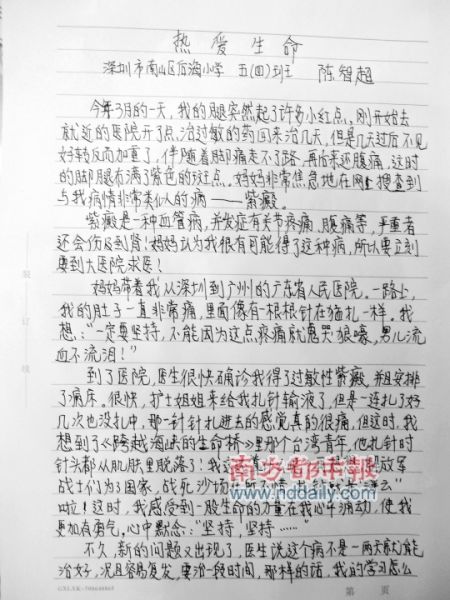 热爱生命
深圳市南山区后海小学 五(四)班 陈智超
今年3月的一天，我的腿突然起了许多小红点。刚开始去
就近的医院开了点治过敏的药回来治几天，但是几天过后不见
好转反而加重了，伴随着脚痛走不了路，再后来还腹痛，这时
的脚腿布满了紫色的斑点。妈妈非常焦急地在网上搜查到
与我病情非常类似的病——紫癜。
紫癜是一种血管病，并发症有关节疼痛、腹痛等，严重者
还会伤及到肾！妈妈认为我很有可能得了这种病，所以要立刻
要到大医院求医！
妈妈带着我从深圳到广州的广东省人民医院。一路上，
我的肚子一直非常痛，里面像有一根根针在猛扎一样。我
想："一定要坚持，不能因为这点疼痛就鬼哭狼嚎，男儿流
血不流泪！"
到了医院，医生很快确诊我得了过敏性紫癜，并且安排
了病床。很快，护士姐姐来给我扎针输液了，但是一连扎了好
几次也没扎中，那一针针扎进去的感觉真的很痛，但这时，我
想到了《跨越海峡的生命桥》里那个台湾青年，他扎针时
针头都从肌肤里脱落了！我
放军
战士们为了国家，战死沙场
啦！这时，我感受到一股生命的力量在我心中涌动，使我
更加有勇气，心中默念："坚持，坚持……"
不久，新的问题又出现了，医生说这个病不是一两天就能
治好，况且容易复发，要治一段时间，那样的话，我的学习怎么
南方都市报
www.nddaily.com
页
装
订
线